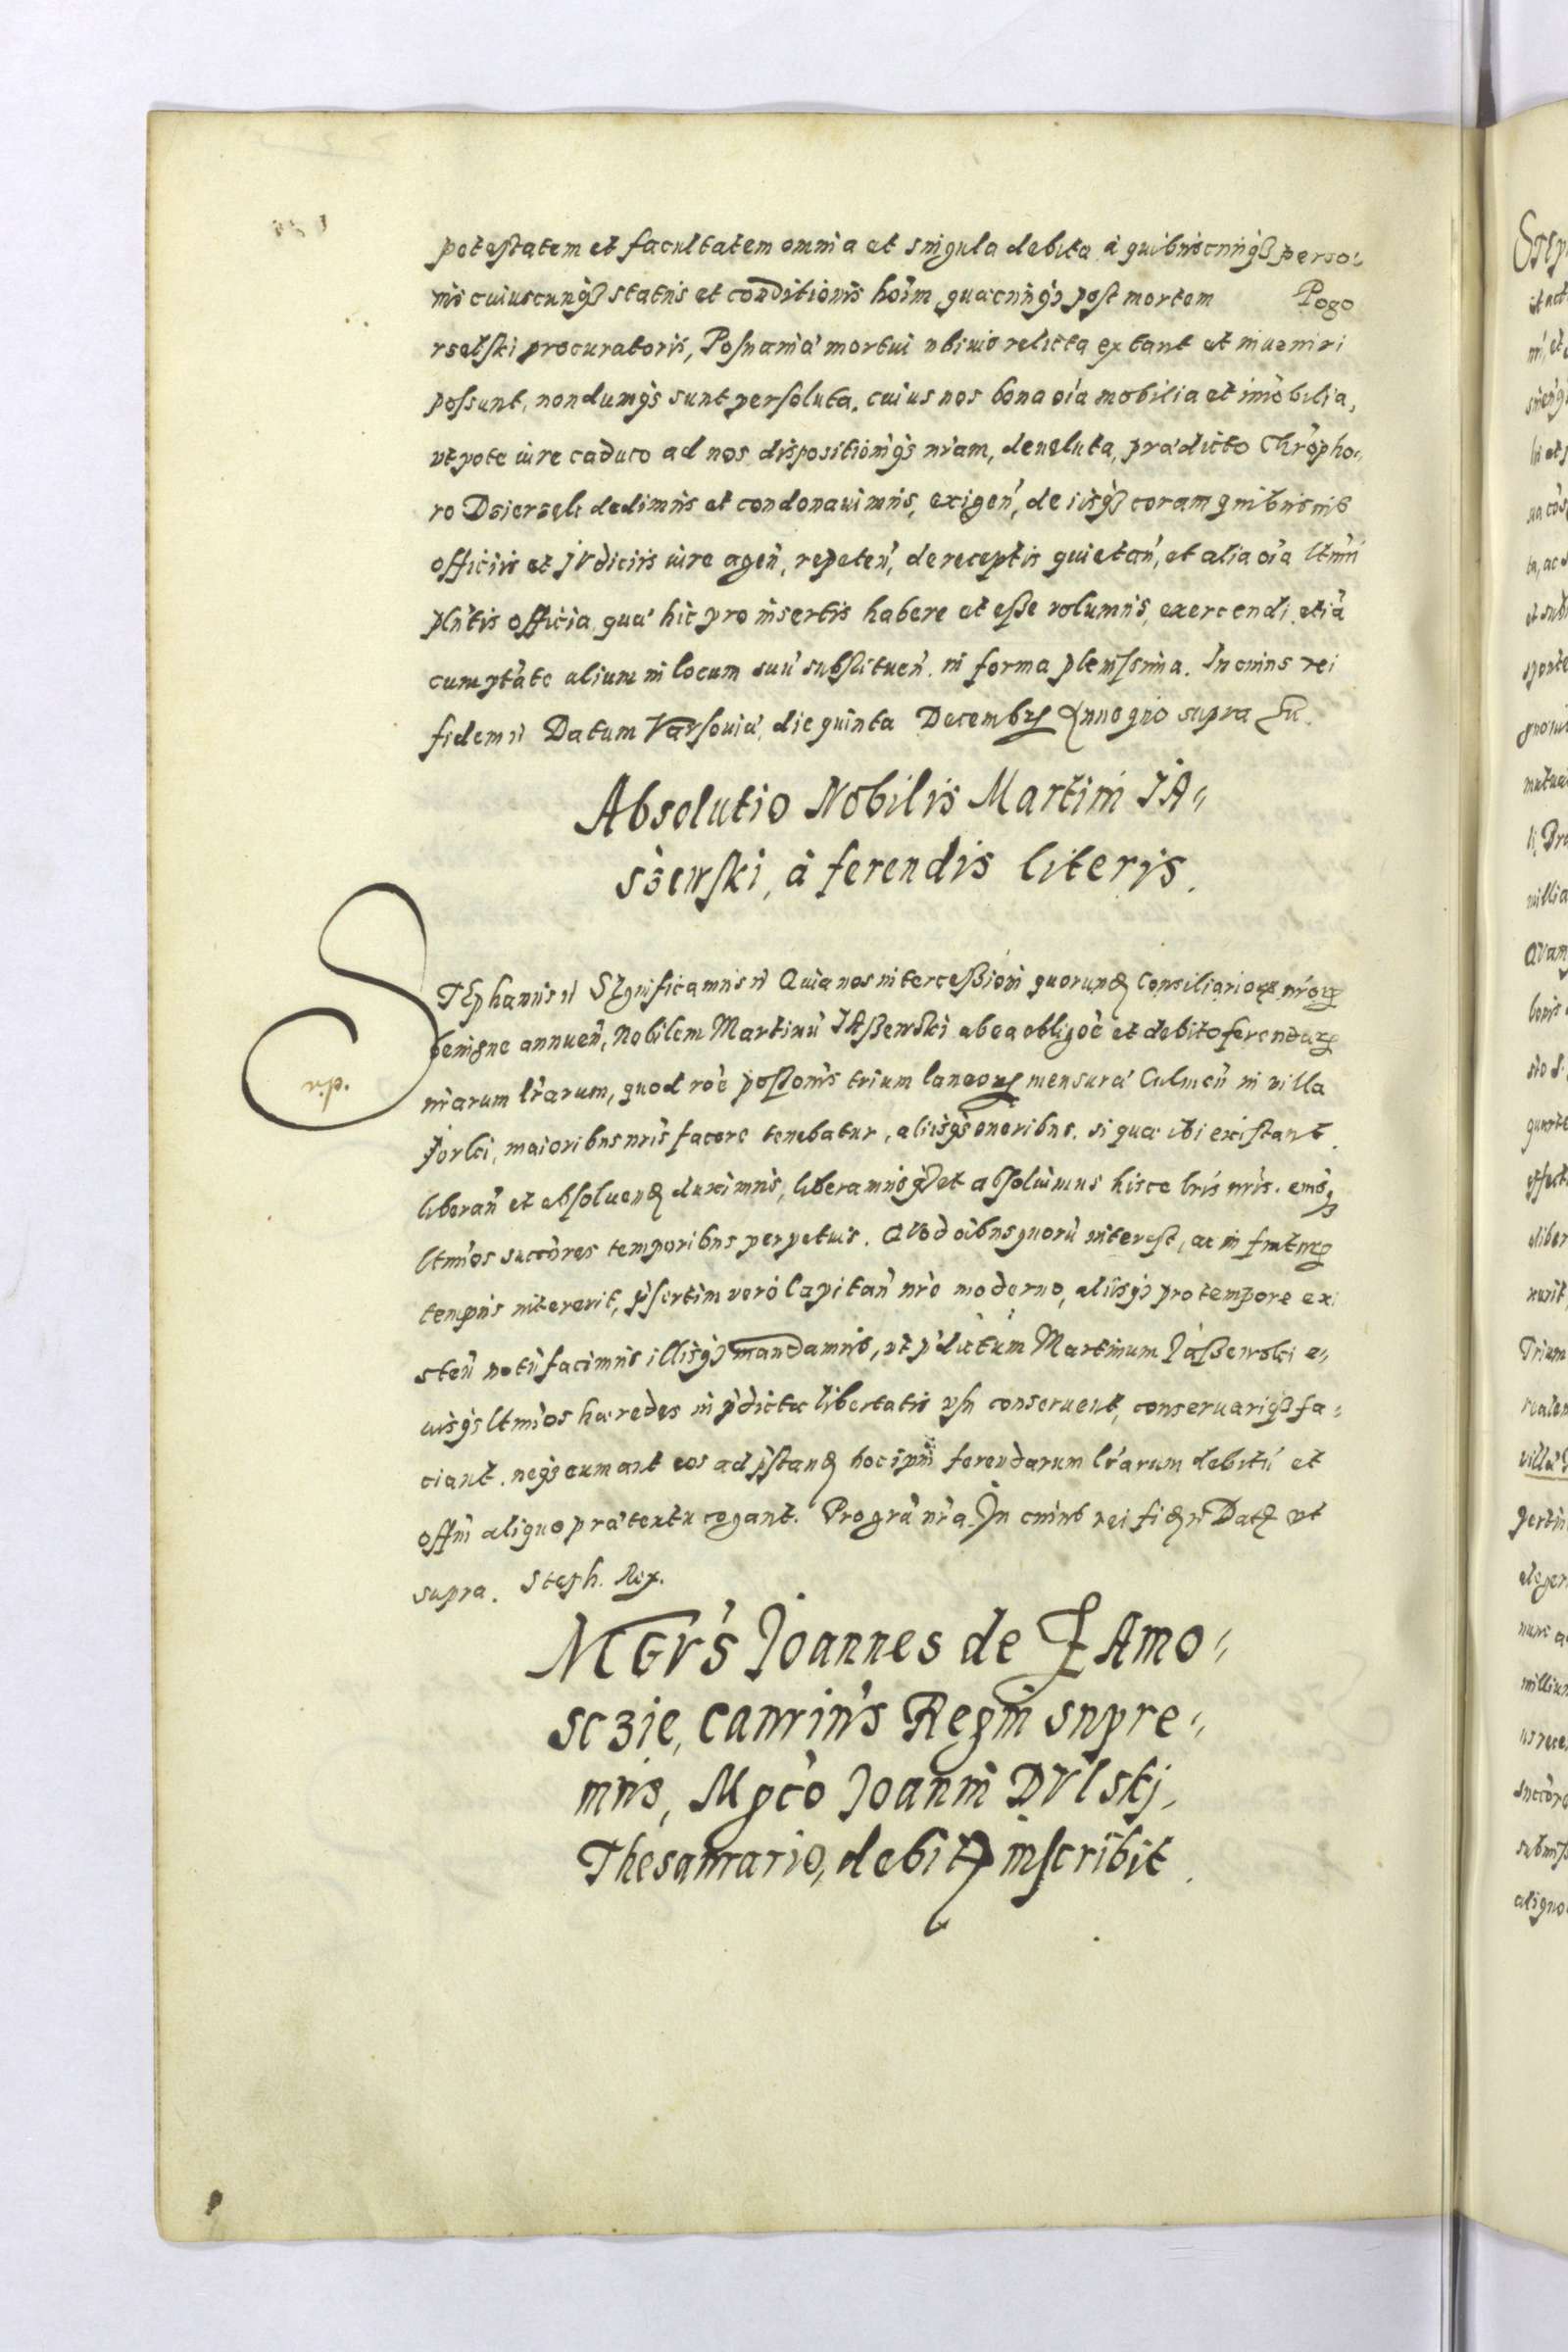 potestatem et facultatem omnia et singula debita à quibuscunqꝫ perso-
nis cuiuscunqꝫ status et conditionis hoĩm, quæcunqꝫ post mortem Pogo
rselski procuratoris, Posnaniæ mortui ubiuis relicta extant et inueniri
possunt, nondumqꝫ sunt persoluta, cuius nos bona oĩa mobilia et im̃obilia,
vtpote iure caduco ad nos dispositionẽqꝫ nr̃am, deuoluta, prædicto Chrõpho-
ro Dzierzek dedimus et condonauimus, exigeñ, de iisqꝫ coram quibusuis
officiis et jVdiciis iure ageñ, repeteñ, de receptis quietañ, et alia oĩa ltm̃i
officia, quæ hic pro insertis habere et esse volumus, exercendi, etiã
cum ptãte alium in locum suũ substitueñ. in forma plenissima. In cuius rei
fidem Datum VarSouiæ, die quinta Decembrꝭ Anno quo supra
Absolutio Nobilis Martini IA-
sżewski, à ferendis literis.
STEphanus Significamus Quia nos intercessioni quorundꝫ Consiliarioꝝ nr̃oꝝ
benigne annueñ, Nobilem Martinũ IAszewski ab ea obligõe et debito ferendaꝝ
nr̃arum lr̃arum, quod rõe possonis trium laneoꝝ mensuræ Culmeñ in villa
maioribus nr̃is facere tenebatur, aliisqꝫ oneribus, si quæ ibi existant
liberañ et absoluendꝫ duximus, liberamusqꝫ et absoluimus hisce lr̃is nr̃is. eiusqꝫ
ltm̃os succõres temporibus perpetuis. QVod oĩbus quorũ interest, ac in futurꝫ
tempus intererit, p̃sertim verò Capitañ nr̃o moderno, aliisqꝫ pro tempore exi
steñ notũ facimus illisqꝫ mandamus, vt p̃dictum Martinum Jaszewski e-
iusqꝫ ltm̃os hæredes in p̃dictæ libertatis vsu conseruent, conseruariqꝫ fa-
ciant. neqꝫ eum aut eos ad p̃standꝫ hoc ipm̃ ferendarum lr̃arum debitũ et
offm̃ aliquo prætextu cogant. Pro grã nr̃a. In cuius rei fidꝫ Datꝫ vt
supra. Steph. Rex.
v.p.
MGVs Joannes de ZAmo-
sczie, Canr̃ius Regni supre-
mus, Mgco Joanni DVlskj,
Thesaurario, debitꝫ inscribit.